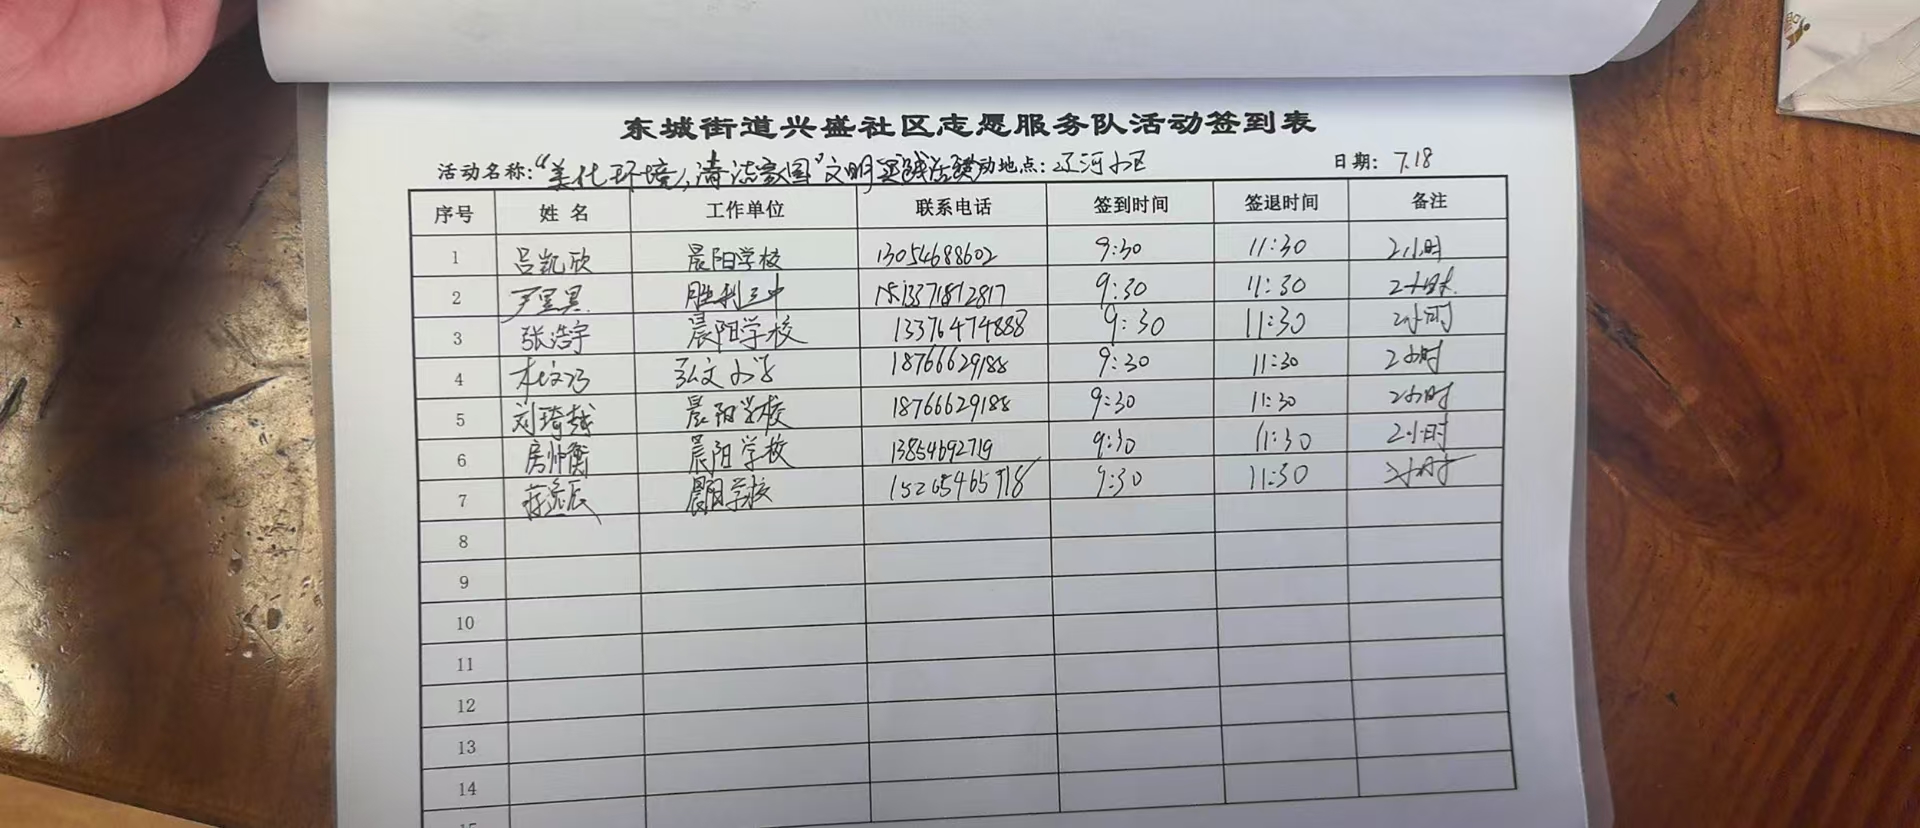 东城街道兴盛社区志愿服务队活动签到表
活动名称:“美化环境,清洁家园”文明实践活动 活动地点:辽河小区 日期: 7.18
序号 姓名 工作单位 联系电话 签到时间 签退时间 备注
1 吕凯欣 晨阳学校 13054688602 9:30 11:30 2小时
2 胜利三中 9:30 11:30 2小时
3 张浩宇 晨阳学校 13376474888 9:30 11:30 2小时
4 弘文小学 18766629188 9:30 11:30 2小时
5 刘琦越 晨阳学校 18766629188 9:30 11:30 2小时
6 房帅衡 晨阳学校 13854692719 9:30 11:30 2小时
7 晨阳学校 15265465918 9:30 11:30 2小时
8
9
10
11
12
13
14